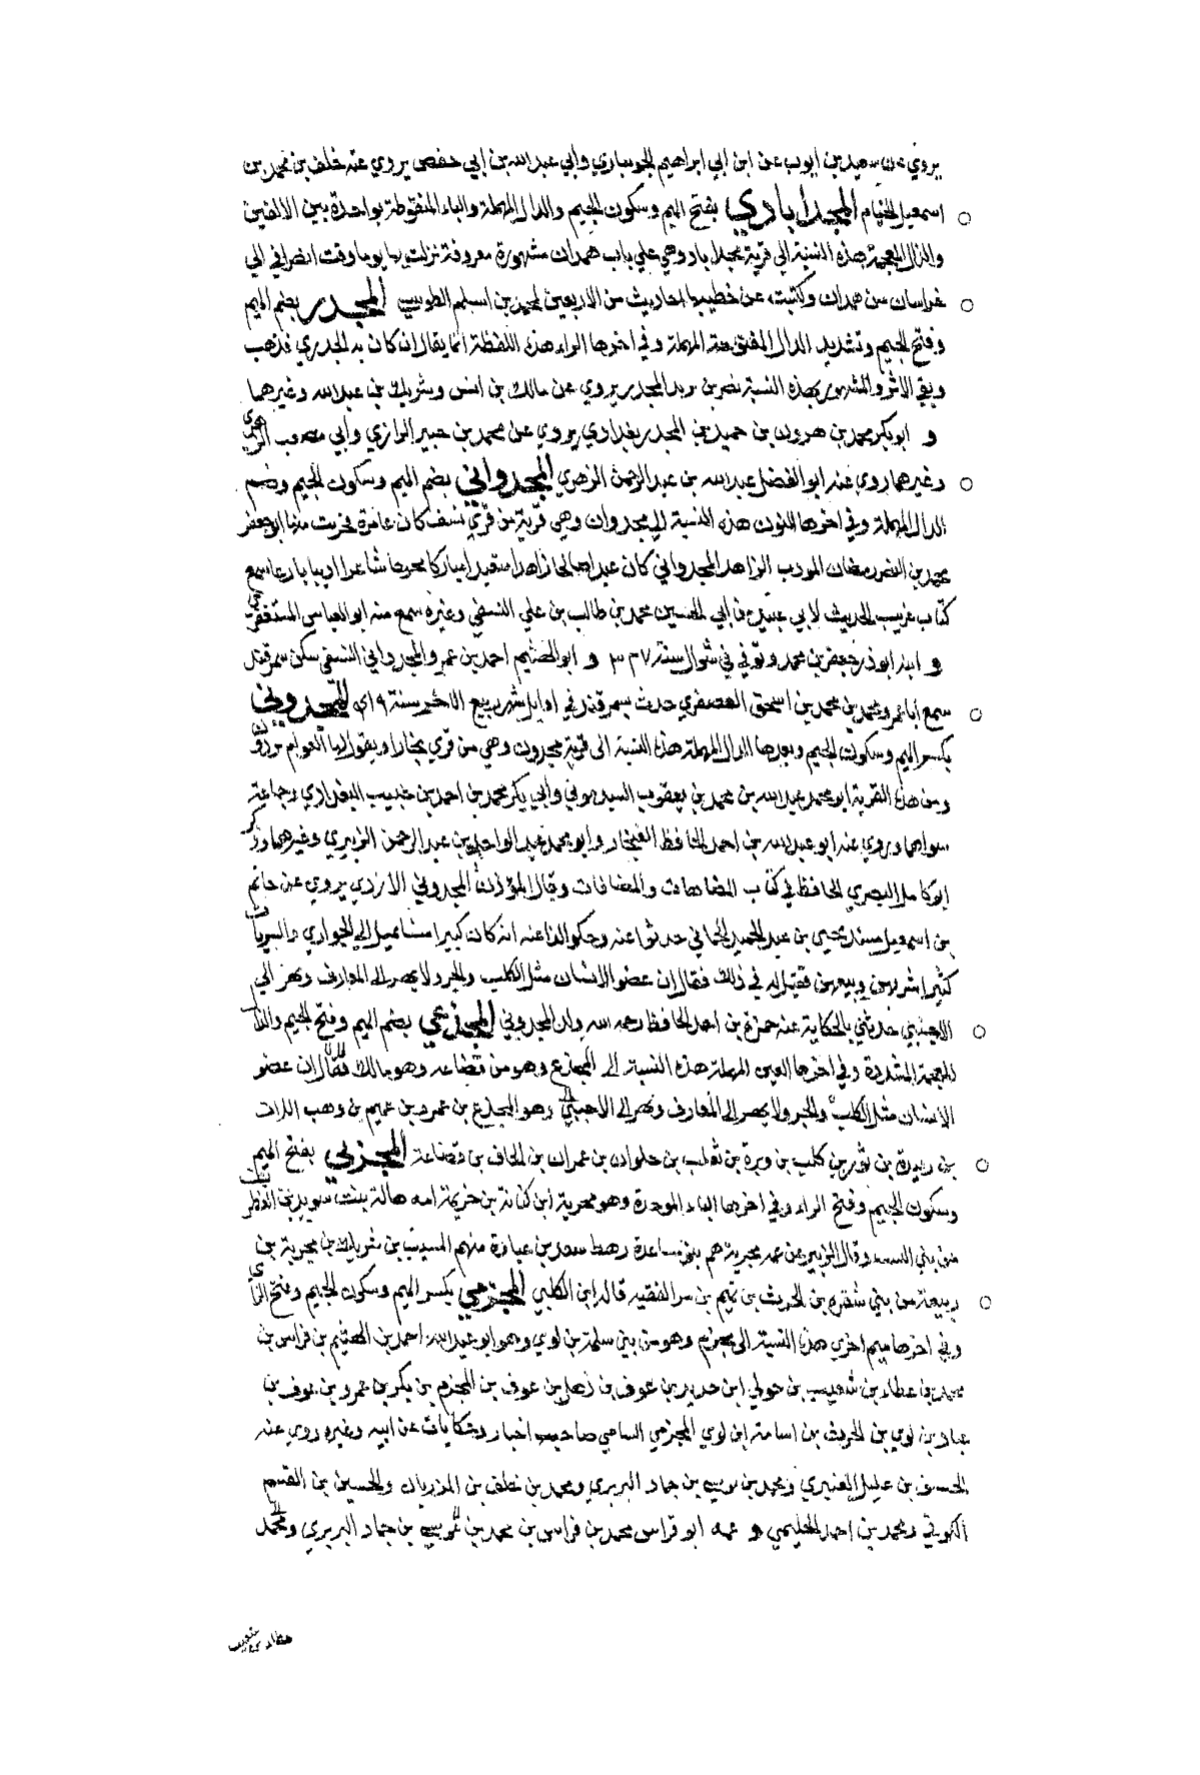 يروي عن سعيد بن ايوب عن ابن ابي ابراهيم الجوباري وابي عبد الله بن ابي حفص يروي عنه خلف بن محمد بن
اسمعيل الخيام المجدابادي بفتح الميم وسكون الجيم والدال المهملة والباء المنقوطة بواحدة بين الالفين
والذال المعجمة هذه النسبة الي قرية مجداباد وهي علي باب همدان مشهورة معروفة نزلت بها يوما وقت انصرافي الي
خراسان من همدان وكتبت عن خطيبها احاديث من الاربعين لمحمد بن اسلم الطوسي المجدر بضم الميم
وفتح الجيم وتشديد الدال المفتوحة المهملة وفي اخرها الراء هذه اللفظة انما يقال ان كان به الجدري فذهب
وبقي الاثر والمشهور بهذه النسبة نصر بن زيد المجدر يروي عن مالك بن انس وشريك بن عبد الله وغيرهما
و ابو بكر محمد بن هرون بن حميد بن المجدر بغدادي يروي عن محمد بن حميد الرازي وابي مصعب الزهري
وغيرهما روي عنه ابو الفضل عبد الله بن عبد الرحمن الزهري المجدواني بضم الميم وسكون الجيم وضم
الدال المهملة وفي اخرها النون هذه النسبة الي مجدوان وهي قرية من قري نسف كان عامرة فخربت منها ابو جعفر
محمد بن النضر رمضان المودب الزاهد المجدواني كان عبدا صالحا زاهدا متعبدا مباركا شاعرا اديبا بارعا سمع
كتاب غريب الحديث لابي عبيد من ابي الحسين محمد بن طالب بن علي النسفي وغيره سمع منه ابو العباس المستغفري
و ابنه ابو ذر جعفر بن محمد وتوفي في شوال سنة ٣٧٧ و ابو الهيثم احمد بن عمرو المجدواني النسفي سكن سمرقند
سمع ابا عمرو محمد بن محمد بن اسحق العصفري حدث بسمرقند في اوايل شهر ربيع الاخر سنة المجدوني
بكسر الميم وسكون الجيم وبعدها الدال المهملة هذه النسبة الي قرية مجدون وهي من قري بخارا ويقول لها العوام
ومن هذه القرية ابو محمد عبد الله بن محمد بن يعقوب وابي بكر محمد بن احمد بن خنب البغدادي وجماعة
سواهما وروي عنه ابو عبد الله بن احمد الحافظ الغنجار وابو محمد عبد الواحد بن عبد الرحمن الزبيري وغيرهما وذكر
ابو كامل البصري الحافظ في كتاب المضاهات والمضافات وقال المؤذن المجدوني الازدي يروي عن حاتم
بن اسمعيل مسند يحيي بن عبد الحميد الحماني حدثوا عنه وحكوا لنا عنه انه كان كبيرا الي الجواري والسريات
كثيرا شريهن وبيعهن فقيل له في ذلك فقال ان عضو الانسان مثل الكلب والجرو لا يهر الي المعارف ويهر الي
الاجنبي حدثني بالحكاية عنه حمزة بن احمد الحافظ رحمه الله وابن المجدوني المجذعي بضم الميم وفتح الجيم والذال
المعجمة المشددة وفي اخرها العين المهملة هذه النسبة الي المجذع وهو من قضاعه وهو مالك فقال ان عضو
الانسان مثل الكلب والجر ولا يهر الي المعارف ويهر الي الاجنبي وهو المجذع بن عمرو بن عميم بن وهب اللات
بن رفيدة بن ثور بن كلب بن وبرة بن ثعلب بن حلوان بن عمران بن الحاف بن قضاعة المجربي بفتح الميم
وسكون الجيم وفتح الراء وفي اخرها الباء الموحدة وهو مجربة ابن كنانة بن خزيمة امه هالة بنت سويد بن الغطر
من بني وقال الزبير عن عمه مجربة هم بنو ساعدة رهط سعد بن عبادة منهم المسيب بن شريك بن مجربة بن
ربيعة من بني شقره بن الحرث بن تميم بن مر الفقيه قاله ابن الكلبي المجزمي بكسر الميم وسكون الجيم وفتح الزاي
وفي اخرها ميم اخري هذه النسبة الي مجزم وهو من بني سلمة بن لوي وهو ابو عبد الله احمد بن الهيثم بن فراس بن
محمد بن عطاء بن شعيب بن خولي ابن حديد بن عوف بن ذهل بن عوف بن المجزم بن بكر بن عمرو بن عوف بن
عباد بن لوي بن الحرث بن اسامة ابن لوي المجزمي السامي صاحب اخبار وحكايات عن ابيه وغيره روي عنه
الحسن بن عليل العنبري ومحمد بن موسي بن حماد البربري ومحمد بن خلف بن المرزبان والحسين بن القسم
الكوكبي ومحمد بن احمد الحليمي و عمه ابو فراس محمد بن فراس بن محمد بن موسي بن حماد البربري ومحمد
عطاء بن شعيب